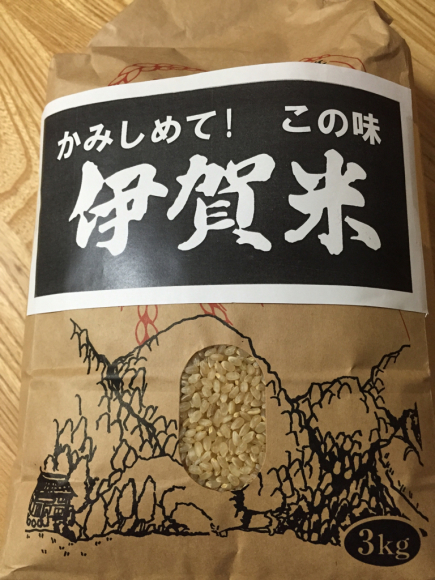 かみしめて! この味
伊賀米
3kg